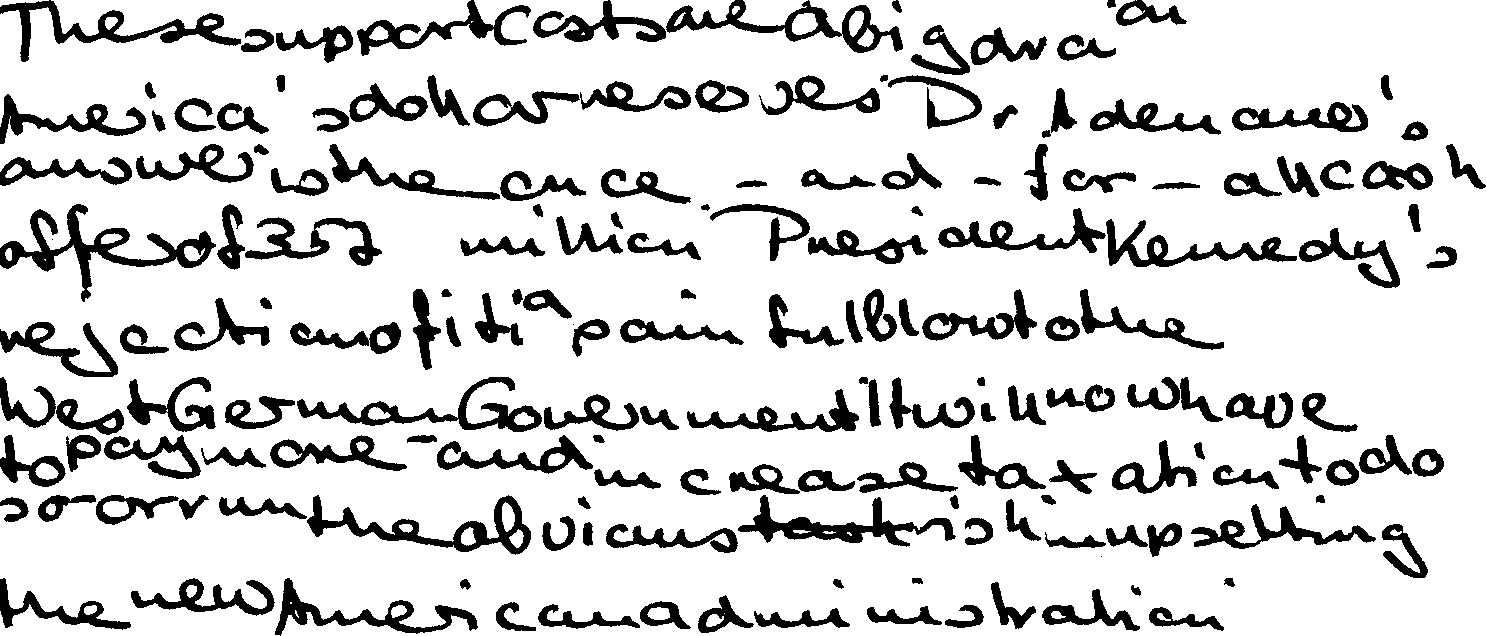 These support costs are a big dra on
America's dollar reserves Dr. Adenauer's
answer is the once - and - for - all cash
offer of 357 million President Kennedy's
rejection of it is a painful blow to the
West German Government It will now have
to pay more - and increase taxation to do
so - or run the obvious risk in upsetting
the new American administration